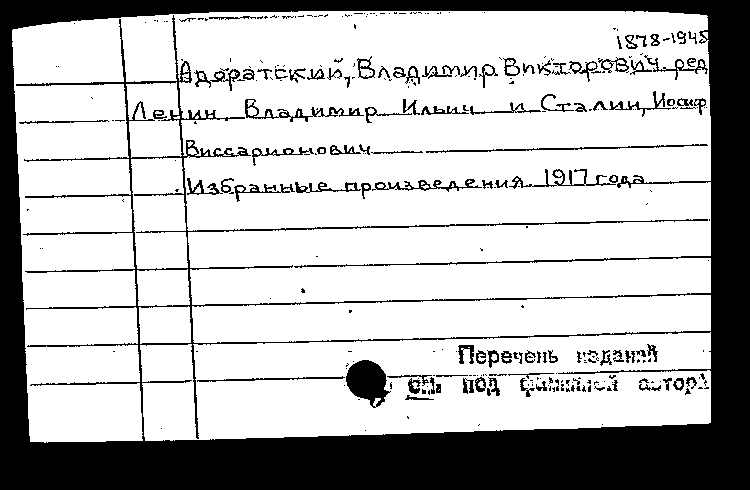 1878-1945
Адоратский, Владимир Викторович. ред
Ленин, Владимир Ильич и Сталин, Иосиф
Виссарионович
Избранные произведения 1917 года
Перечень изданий
см. под фамилией автора